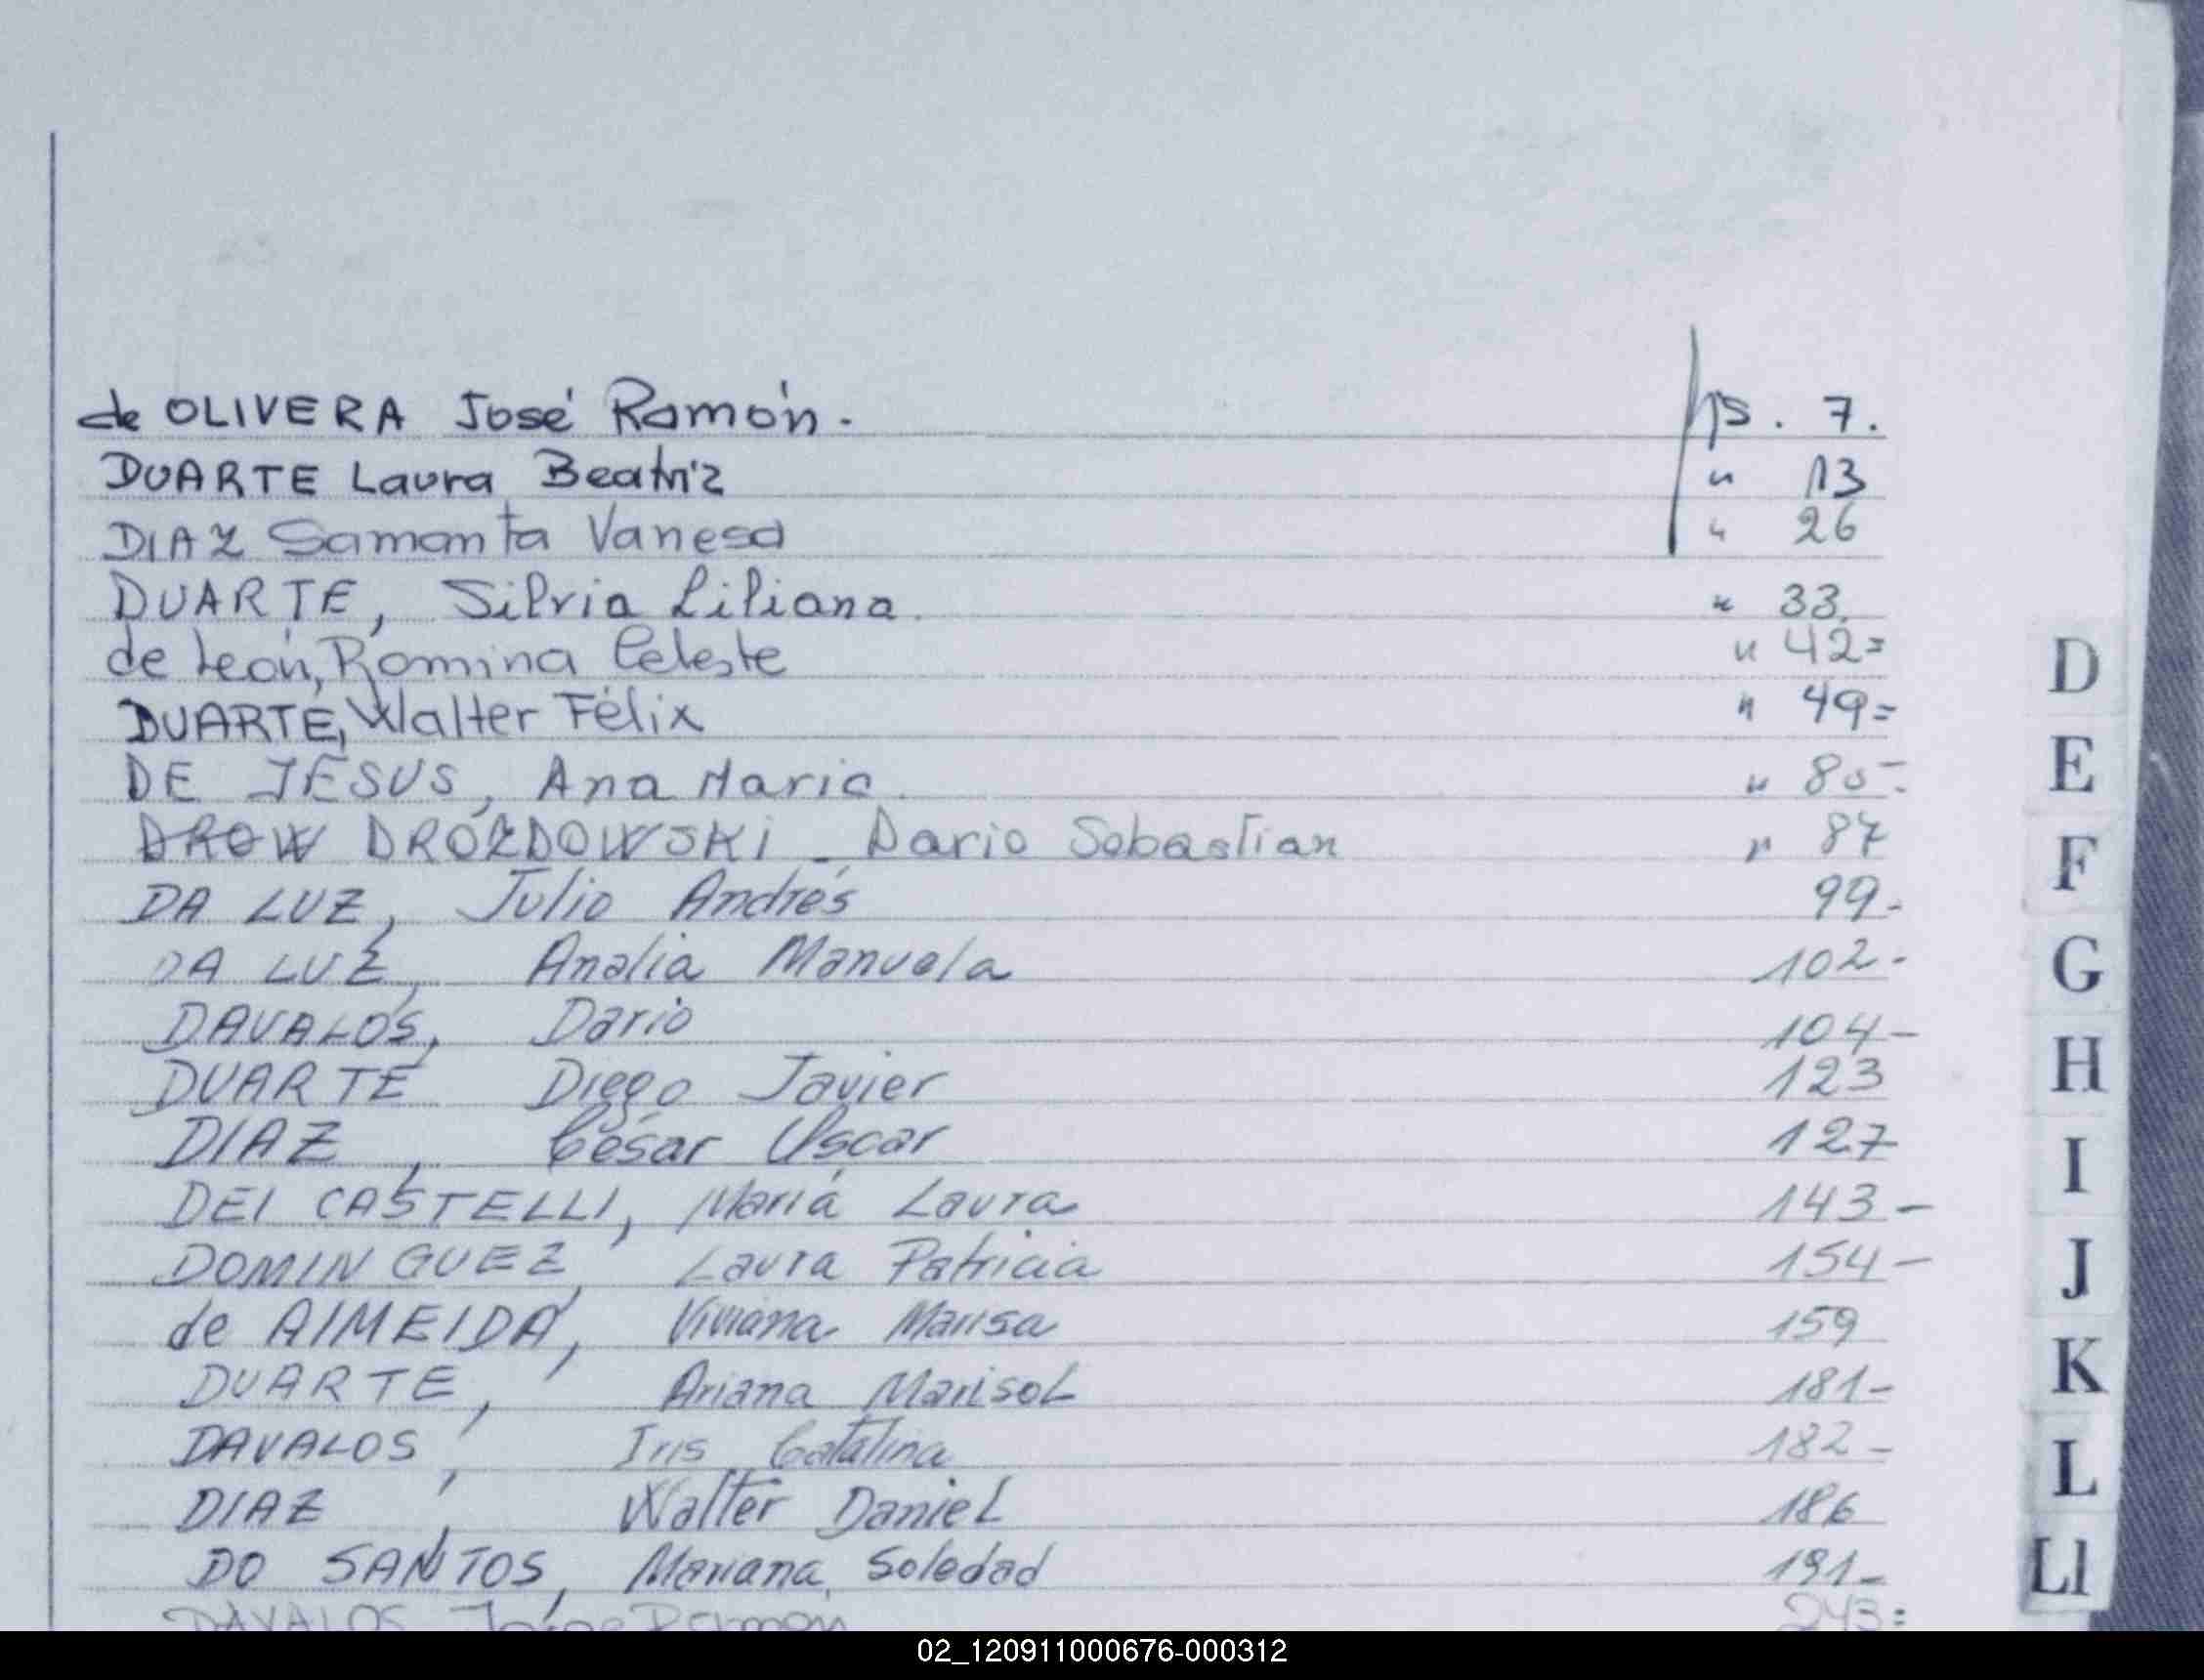 de OLIVERA José Ramón. ps. 7.
DUARTE Laura Beatriz " 13
DIAZ Samanta Vanesa " 26
DUARTE, Silvia Liliana. " 33.
de León, Romina Celeste " 42=
DUARTE, Walter Félix " 49=
DE JESUS, Ana Maria. " 80-
DROW DROZDOWSKI - Dario Sebastian " 87
DA LUZ, Julio Andrés 99-
DA LUZ, Analia Manuela 102-
DAVALOS, Dario 104-
DUARTE Diego Javier 123
DIAZ, César Oscar 127
DEI CASTELLI, María Laura 143-
DOMINGUEZ, Laura Patricia 154-
de AIMEIDA, Viviana Marisa 159
DUARTE, Ariana Marisol 181-
DAVALOS, Iris Catalina 182-
DIAZ, Walter Daniel 186
DO SANTOS, Mariana Soledad 191-
DAVALOS Jorge Ramon 243=
D
E
F
G
H
I
J
K
L
Ll
02_120911000676-000312